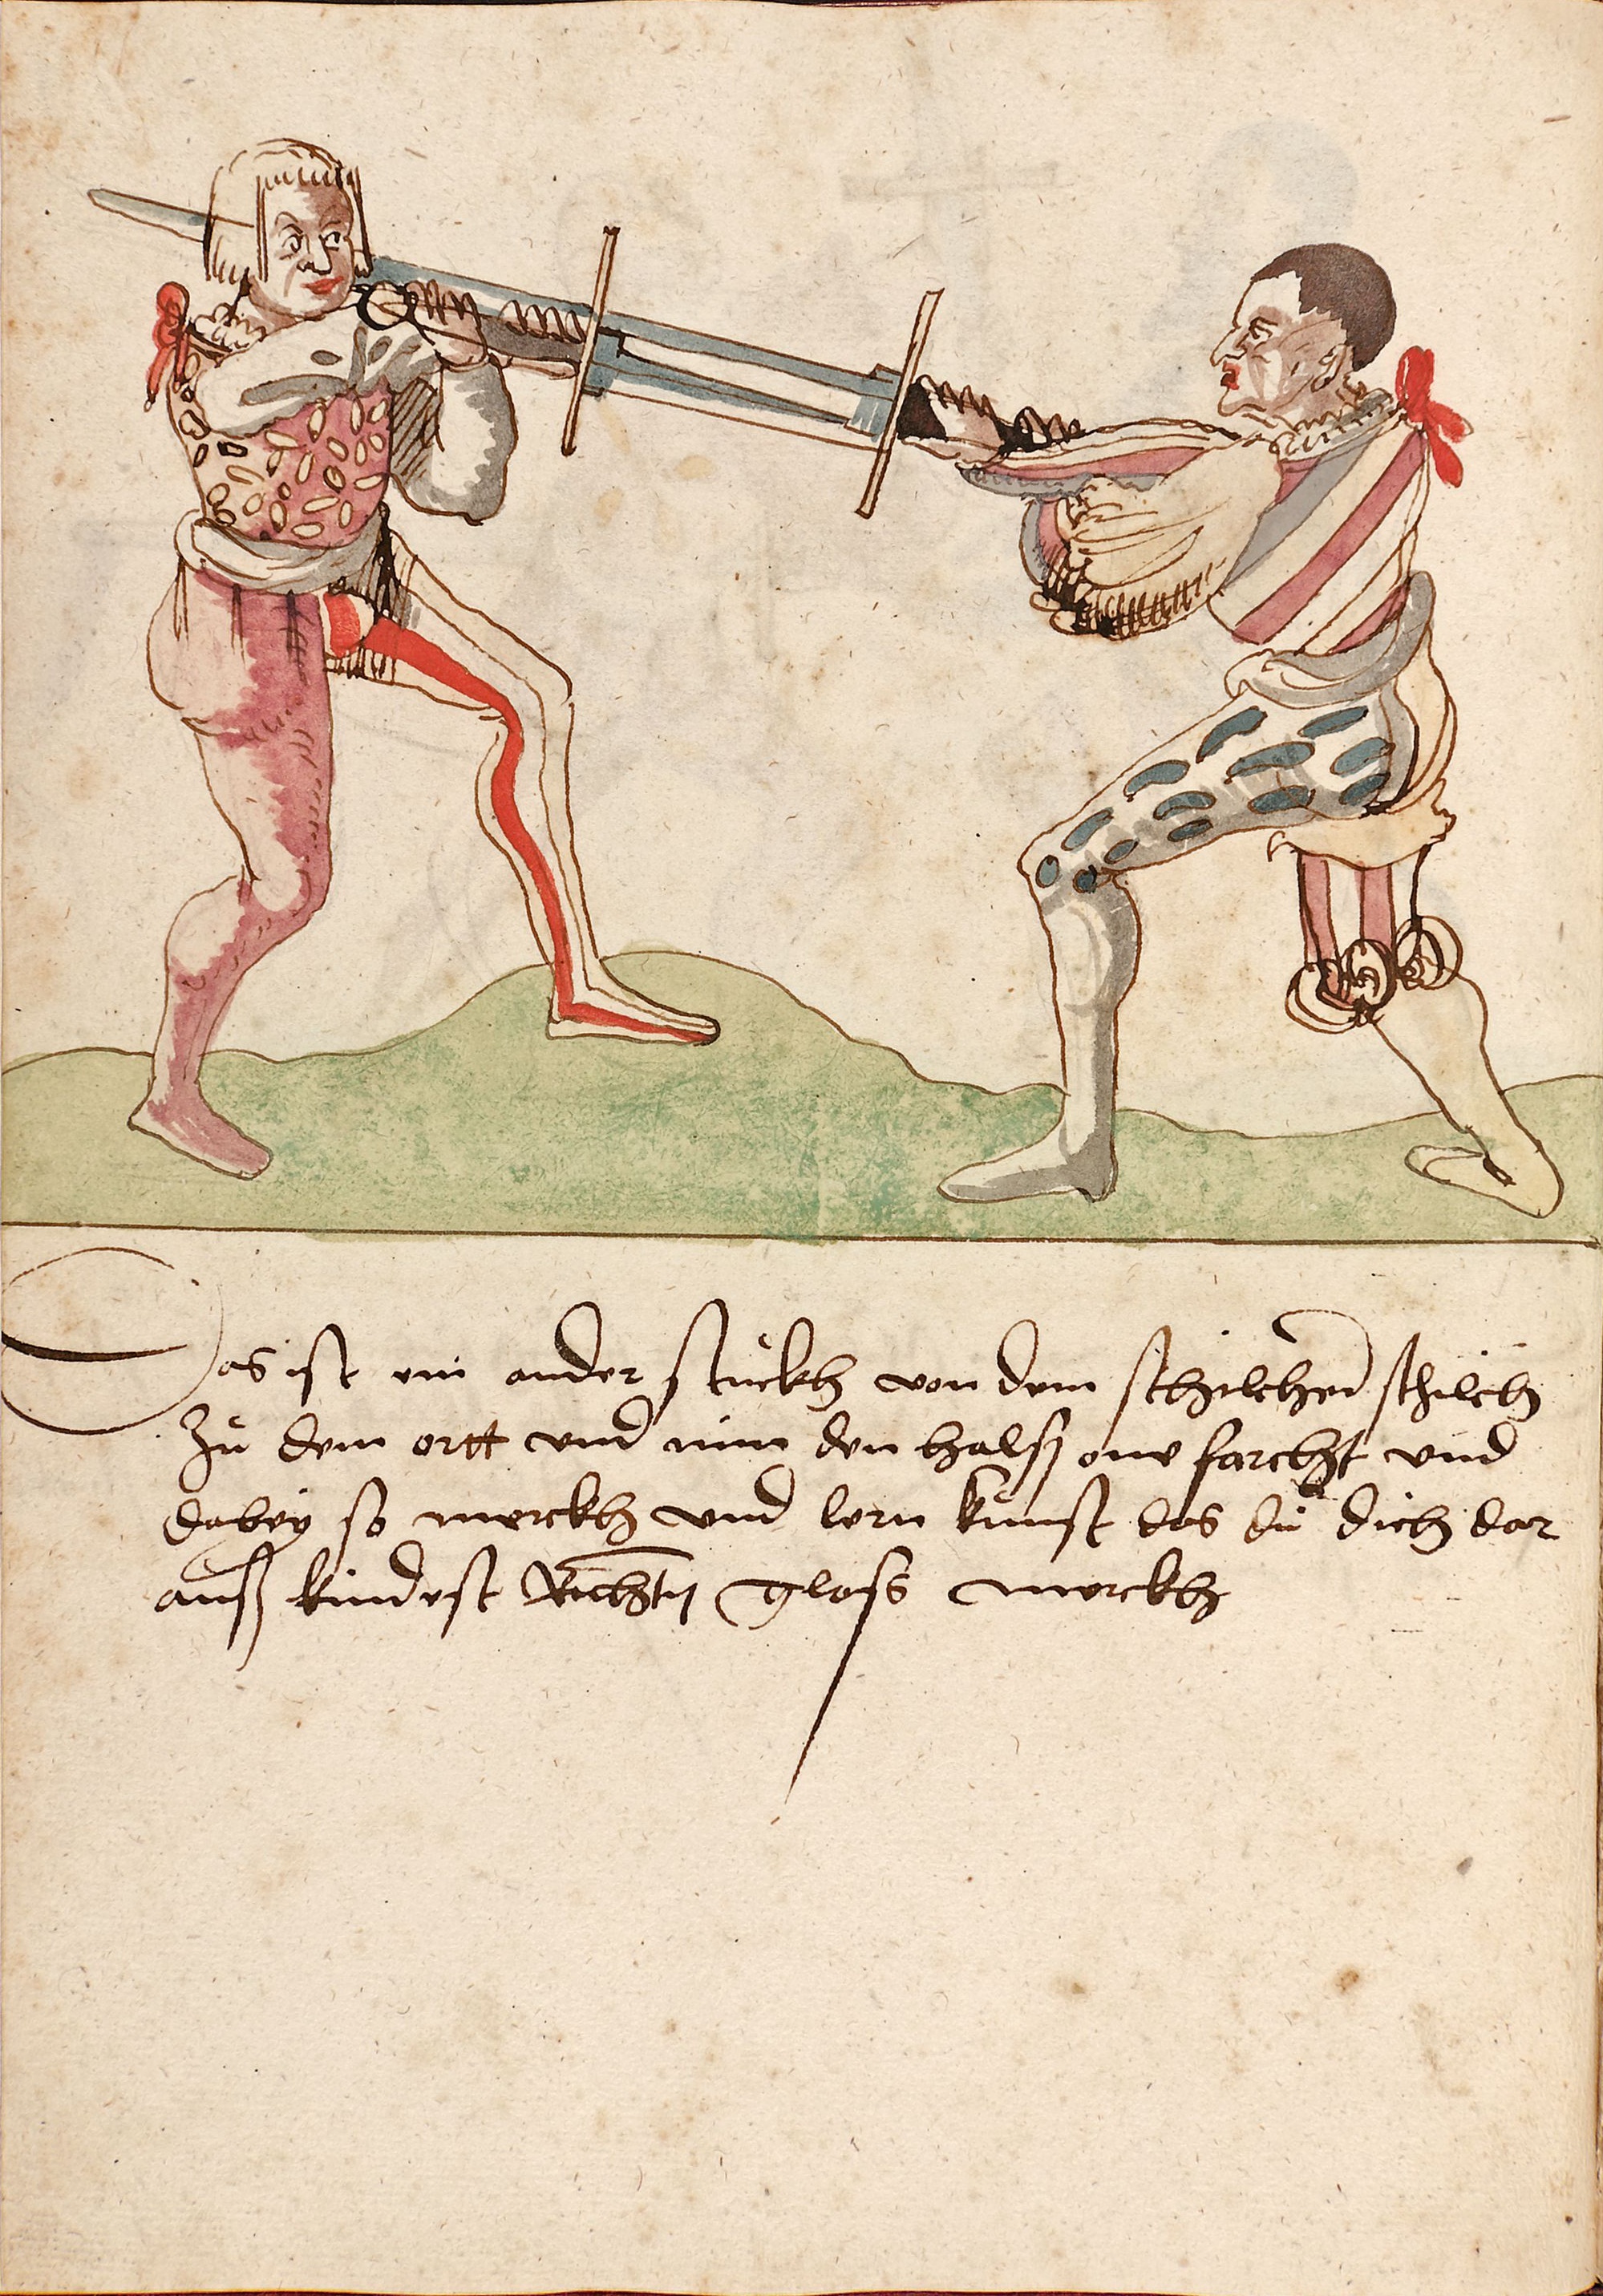 Das ist ein ander stuckh von dem schilchen schilch
zu dem ortt vnd nim den halsz one farcht vnd
dabey so merckh vnd lern kunst das du dich dar
ausz kindest Richten gloss merckh